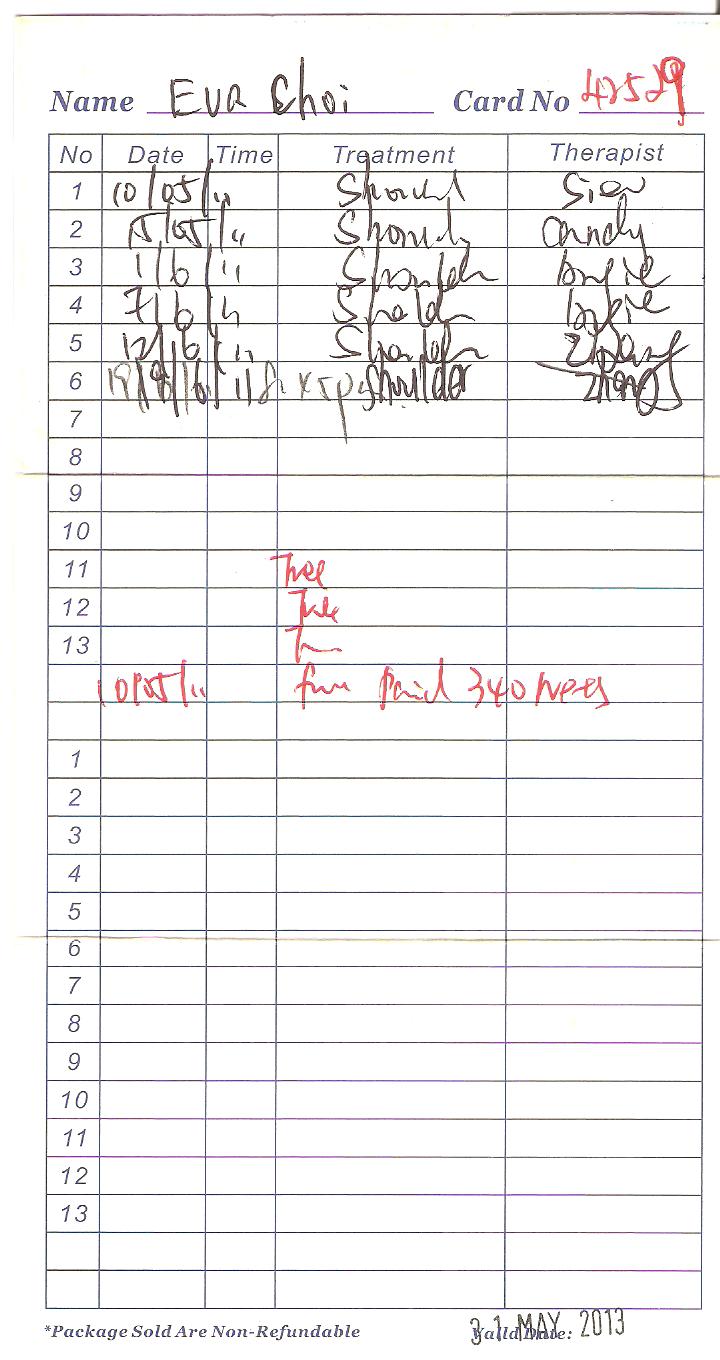 Name Eva Choi Card No 42529
No Date Time Treatment Therapist
1 10/05/11 Should Siew
2 15/05/11 Should Candy
3 1/6/11 Shoulder Angie
4 7/6/11 Sholder Angie
5 12/6/11 Shoulder Zhang
6 /6/11 Shoulder Zhang
7
8
9
10
11 Free
12 Free
13
10/05/11 Paid 340
1
2
3
4
5
6
7
8
9
10
11
12
13
*Package Sold Are Non-Refundable Valid Date: 31 MAY 2013